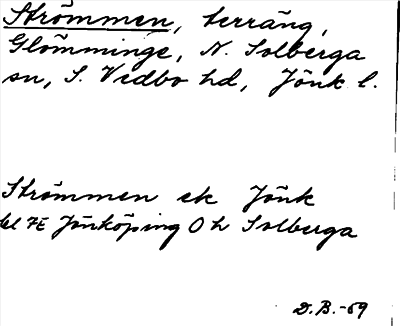 Strömmen, terräng,
Glömminge, N. Solberga
sn, S. Vedbo hd, Jönk l.
Strömmen ek Jönk
bl 7E Jönköping O h Solberga
D.B.-69